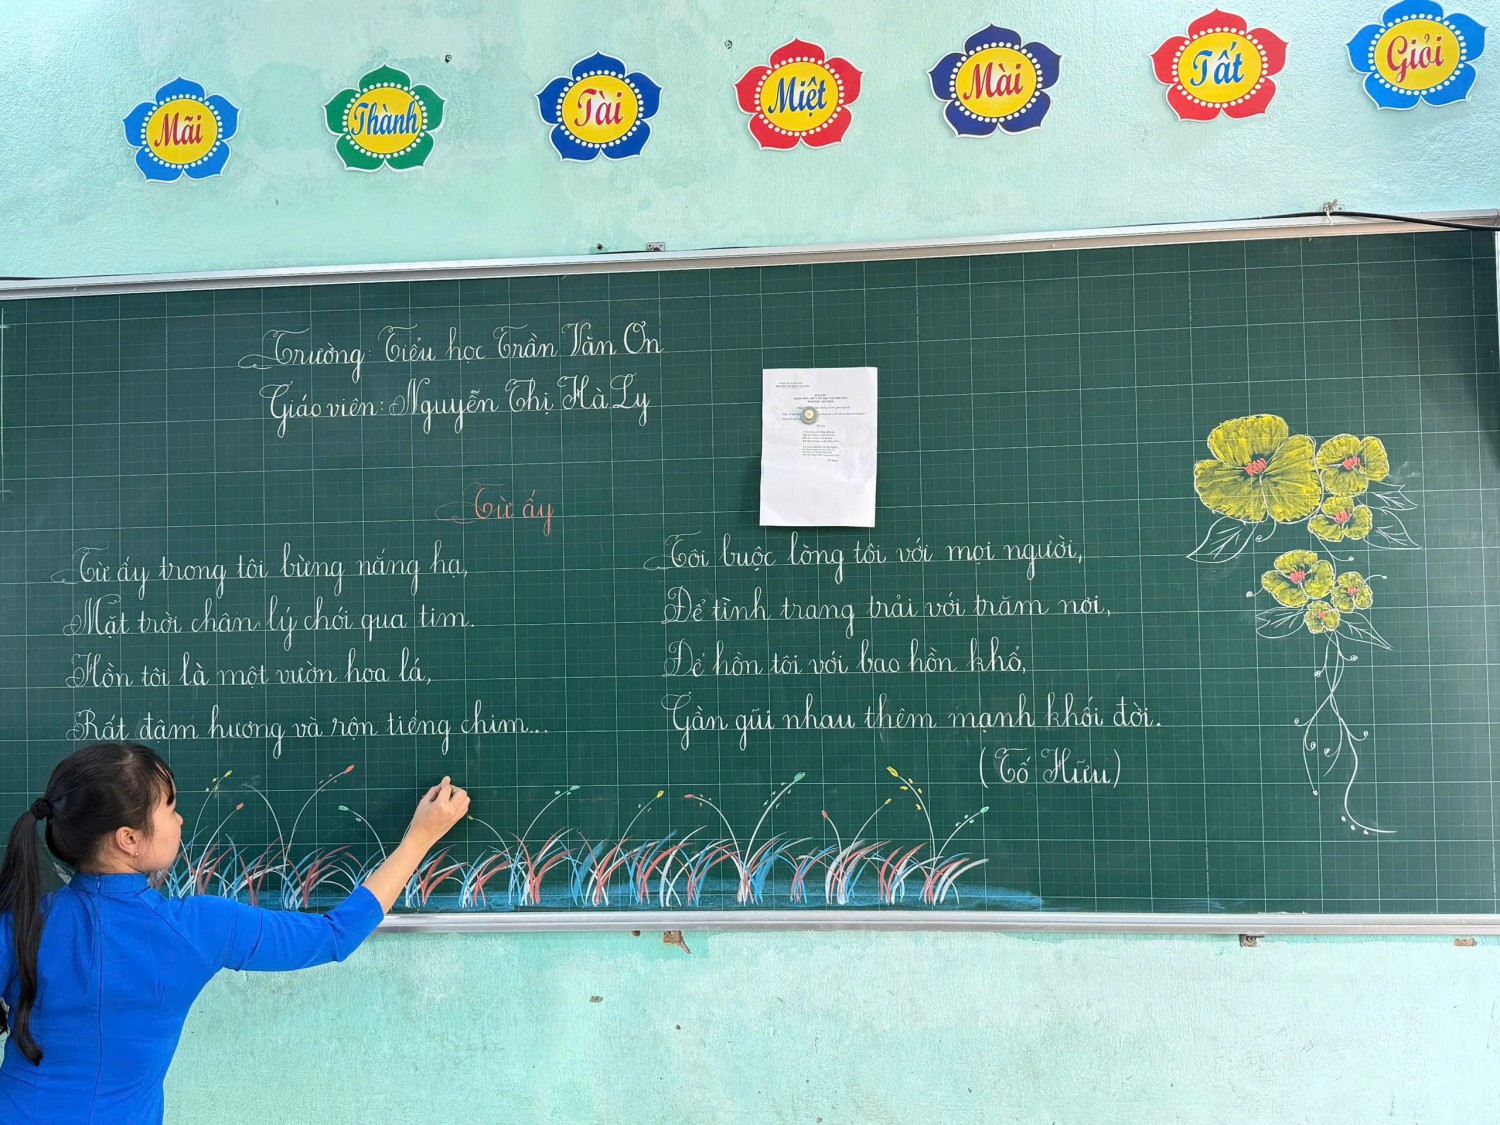 Mãi Thành Tài Miệt Mài Tất Giỏi
Trường: Tiểu học Trần Văn Ơn
Giáo viên: Nguyễn Thị Hà Ly
Từ ấy
Từ ấy trong tôi bừng nắng hạ,
Mặt trời chân lý chói qua tim.
Hồn tôi là một vườn hoa lá,
Rất đậm hương và rộn tiếng chim...
Tôi buộc lòng tôi với mọi người,
Để tình trang trải với trăm nơi,
Để hồn tôi với bao hồn khổ,
Gần gũi nhau thêm mạnh khối đời.
(Tố Hữu)